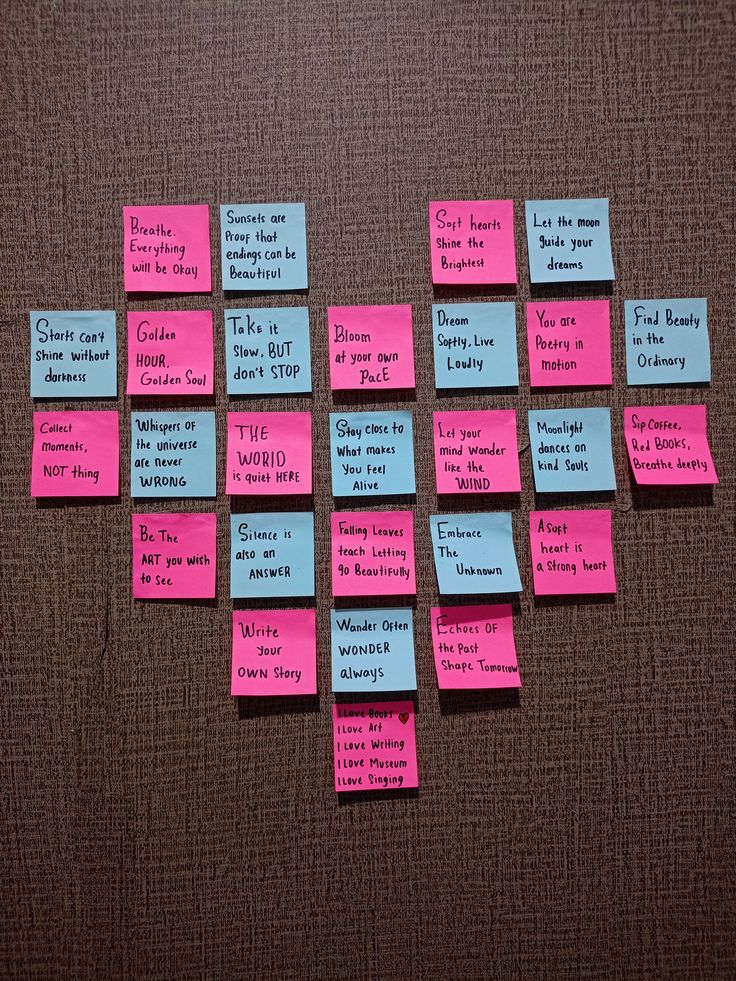 Breathe.
Everything
will be Okay
Sunsets are
Proof that
endings can be
Beautiful
Soft hearts
Shine the
Brightest
Let the moon
guide your
dreams
Starts can't
Shine without
darkness
Golden
HOUR,
Golden Soul
Take it
Slow, BUT
don't STOP
Bloom
at your own
PacE
Dream
Softly, Live
Loudly
You are
Poetry in
motion
Find Beauty
in the
Ordinary
Collect
moments,
NOT thing
Whispers of
the universe
are never
WRONG
THE
WORlD
is quiet HERE
Stay close to
What makes
You Feel
Alive
Let your
mind Wander
like the
WIND
Moonlight
dances on
kind Souls
Sip Coffee,
Red BOOKS,
Breathe deeply
Be The
ART you wish
to see
Silence is
also an
ANSWER
Falling Leaves
teach Letting
go Beautifully
Embrace
The
Unknown
A Soft
heart is
a strong heart
Write
Your
OWN Story
Wander Often
WONDER
always
Echoes Of
the Past
Shape Tomorrow
I Love Books
I Love Art
I Love Writing
I Love Museum
I Love Singing